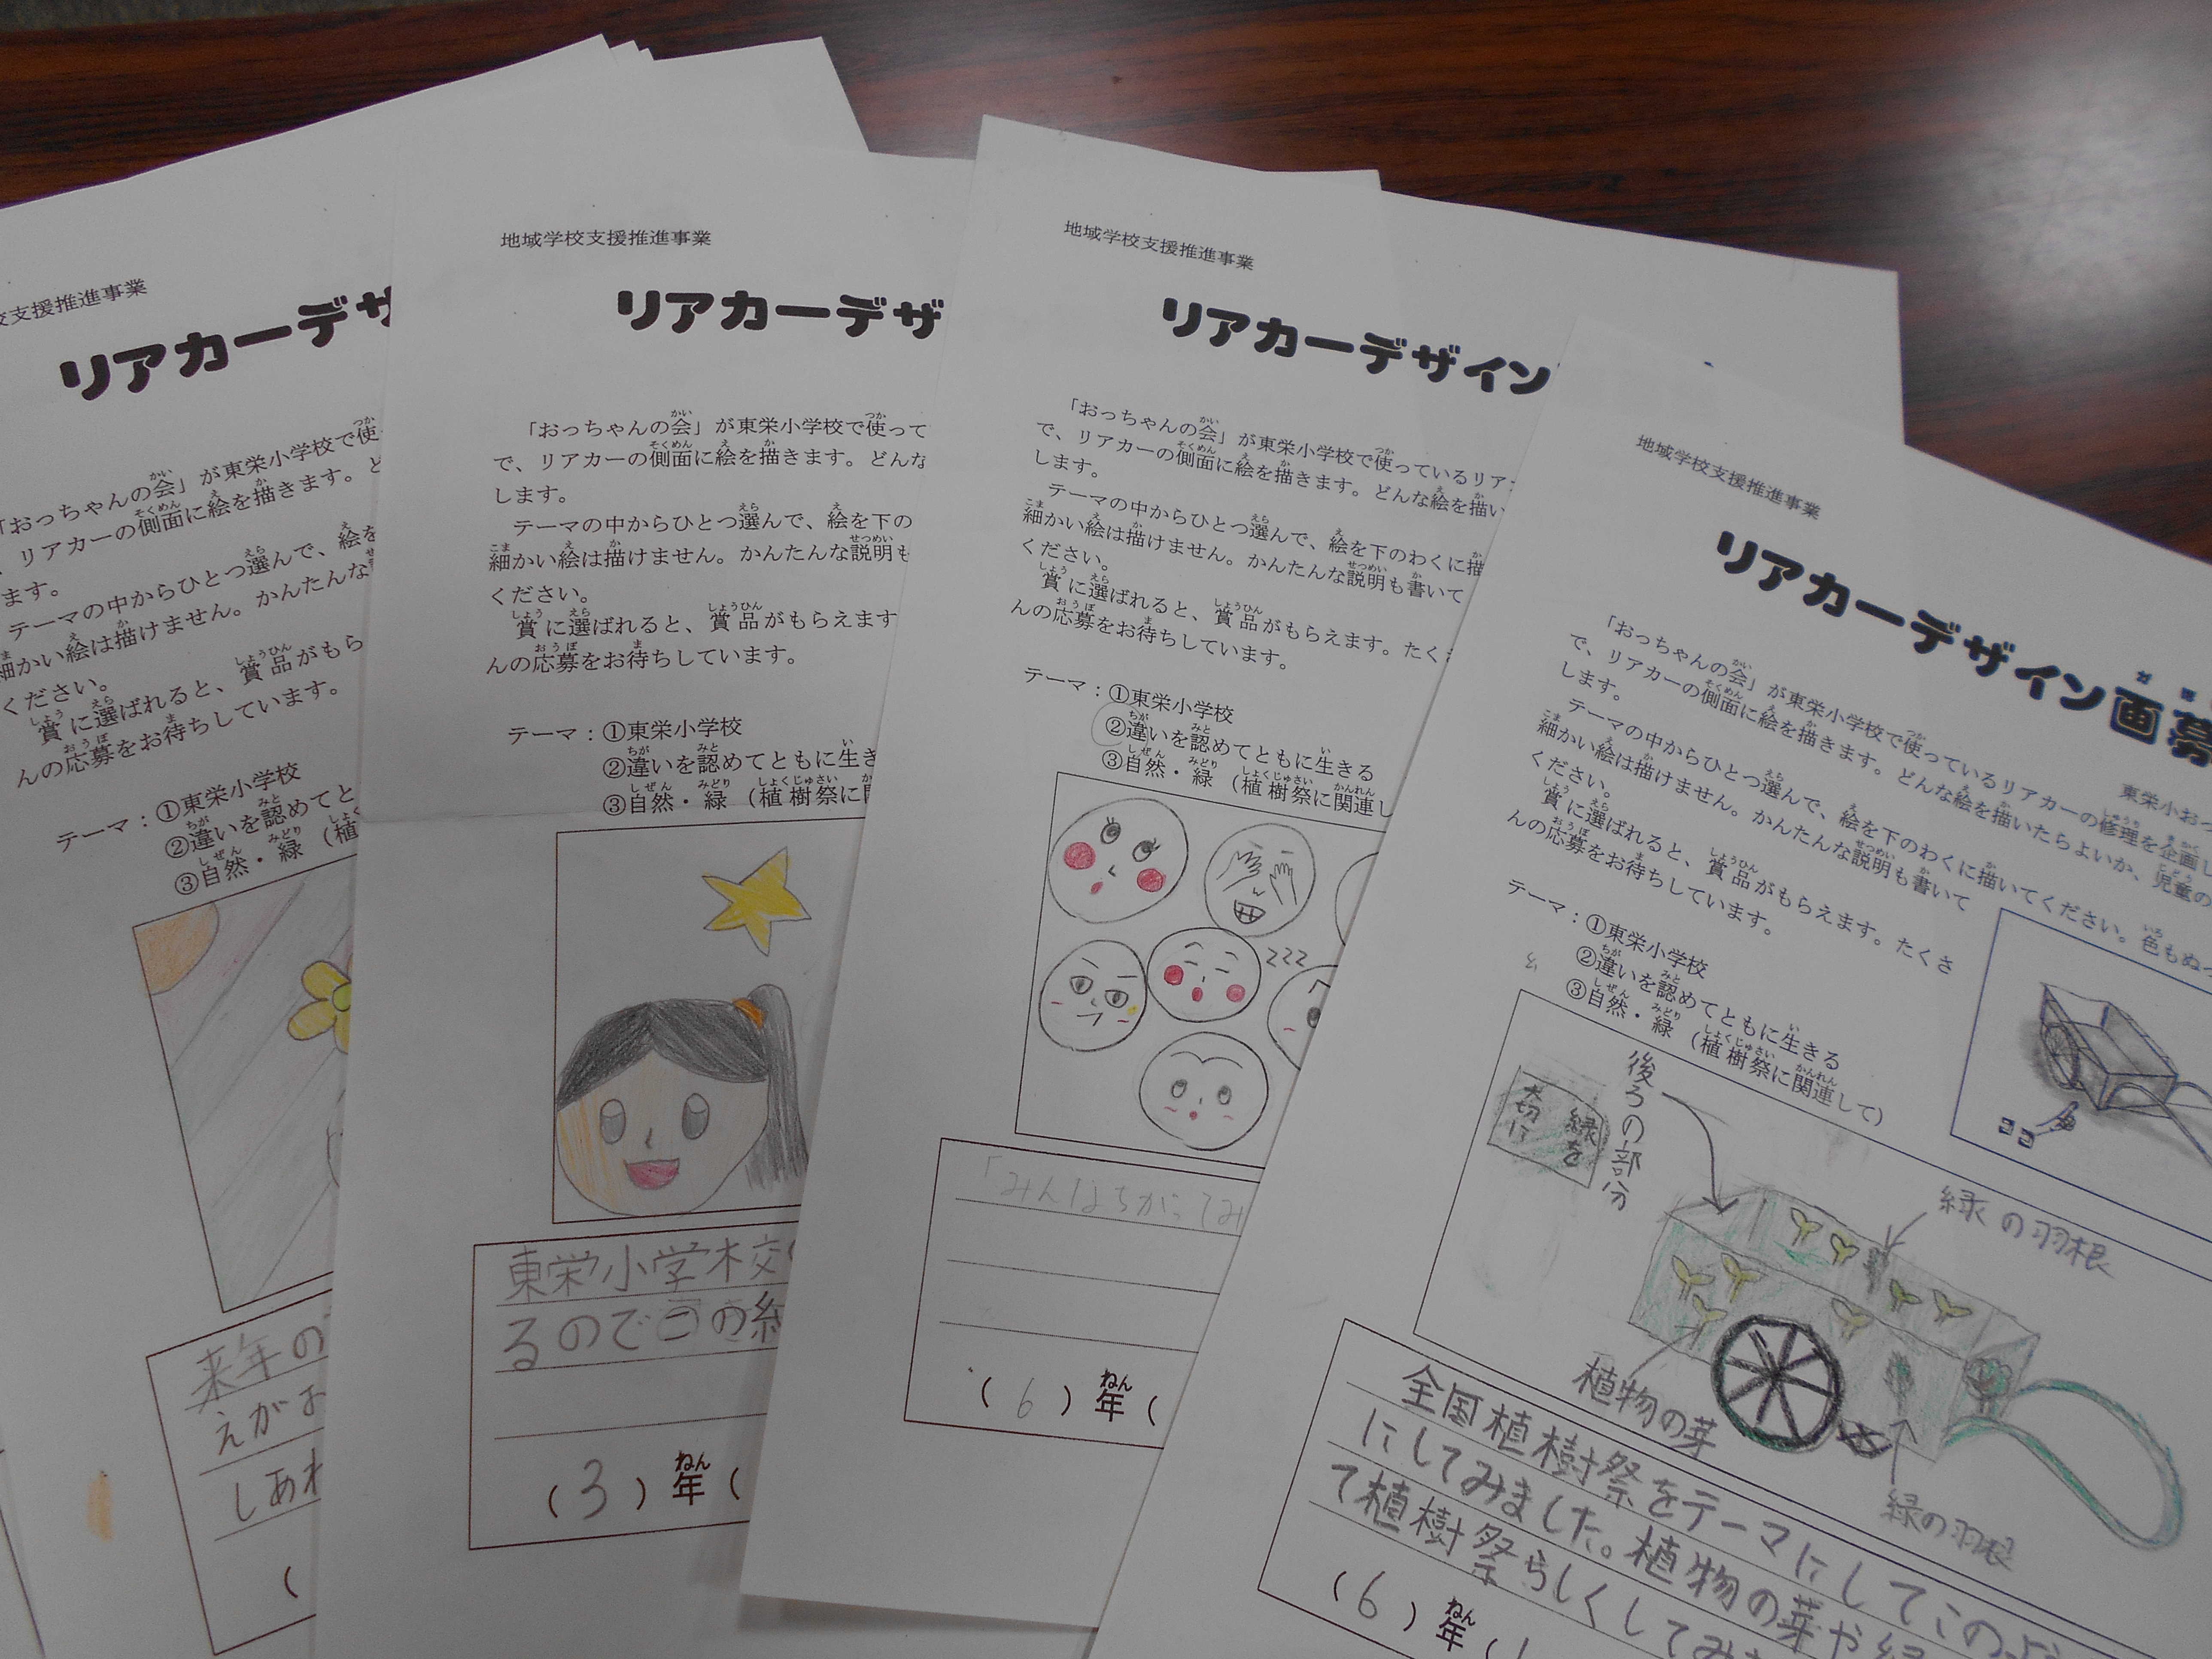 校支援推進事業
リアカーデザ
「おっちゃんの会」が東栄小学校で使
、リアカーの側面に絵を描きます。ど
ます。
テーマの中からひとつ選んで、絵を
細かい絵は描けません。かんたんな
ください。
賞に選ばれると、賞品がもら
んの応募をお待ちしています。
テーマ：①東栄小学校
②違いを認めてと
③自然・緑（植
来年の
えがお
しあわ
（
地域学校支援推進事業
リアカーデザ
「おっちゃんの会」が東栄小学校で使って
で、リアカーの側面に絵を描きます。どんな
します。
テーマの中からひとつ選んで、絵を下の
細かい絵は描けません。かんたんな説明も
ください。
賞に選ばれると、賞品がもらえます
んの応募をお待ちしています。
テーマ：①東栄小学校
②違いを認めてともに生き
③自然・緑（植樹祭に
東栄小学校
るのでこの絵
（3）年（
地域学校支援推進事業
リアカーデザイン
「おっちゃんの会」が東栄小学校で使っているリア
で、リアカーの側面に絵を描きます。どんな絵を描い
します。
テーマの中からひとつ選んで、絵を下のわくに描
細かい絵は描けません。かんたんな説明も書いて
ください。
賞に選ばれると、賞品がもらえます。たく
んの応募をお待ちしています。
テーマ：①東栄小学校
②違いを認めてともに生きる
③自然・緑（植樹祭に関連し
zzz
「みんなちがってみ
（6）年（
地域学校支援推進事業
リアカーデザイン画募
東栄小おっ
「おっちゃんの会」が東栄小学校で使っているリアカーの修理を企画し
で、リアカーの側面に絵を描きます。どんな絵を描いたらよいか、児童の
します。
テーマの中からひとつ選んで、絵を下のわくに描いてください。色もぬっ
細かい絵は描けません。かんたんな説明も書いて
ください。
賞に選ばれると、賞品がもらえます。たくさ
んの応募をお待ちしています。
テーマ：①東栄小学校
②違いを認めてともに生きる
③自然・緑（植樹祭に関連して）
ココ
後ろの部分
緑を
大切に
緑の羽根
植物の芽
緑の羽根
全国植樹祭をテーマにしてこのよう
にしてみました。植物の芽や緑
て植樹祭らしくしてみ
（6）年（